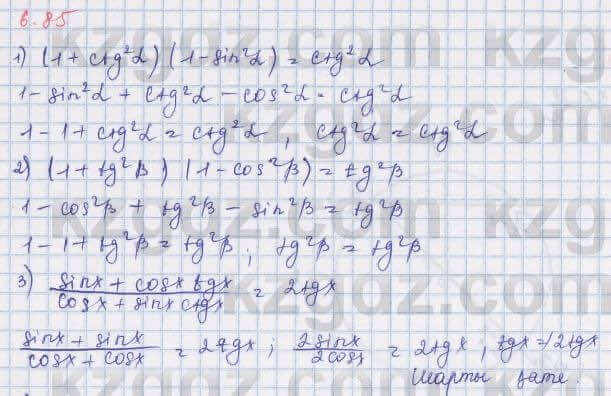 6.85
1) (1 + ctg²α)(1 - sin²α) = ctg²α
1 - sin²α + ctg²α - cos²α = ctg²α
1 - 1 + ctg²α = ctg²α, ctg²α = ctg²α
2) (1 + tg²β)(1 - cos²β) = tg²β
1 - cos²β + tg²β - sin²β = tg²β
1 - 1 + tg²β = tg²β; tg²β = tg²β
3) (sinx + cosx tgx)/(cosx + sinx ctgx) = 2tgx
(sinx + sinx)/(cosx + cosx) = 2tgx; 2sinx/2cosx = 2tgx, tgx ≠ 2tgx
Шарты қате.
kzgdz.com